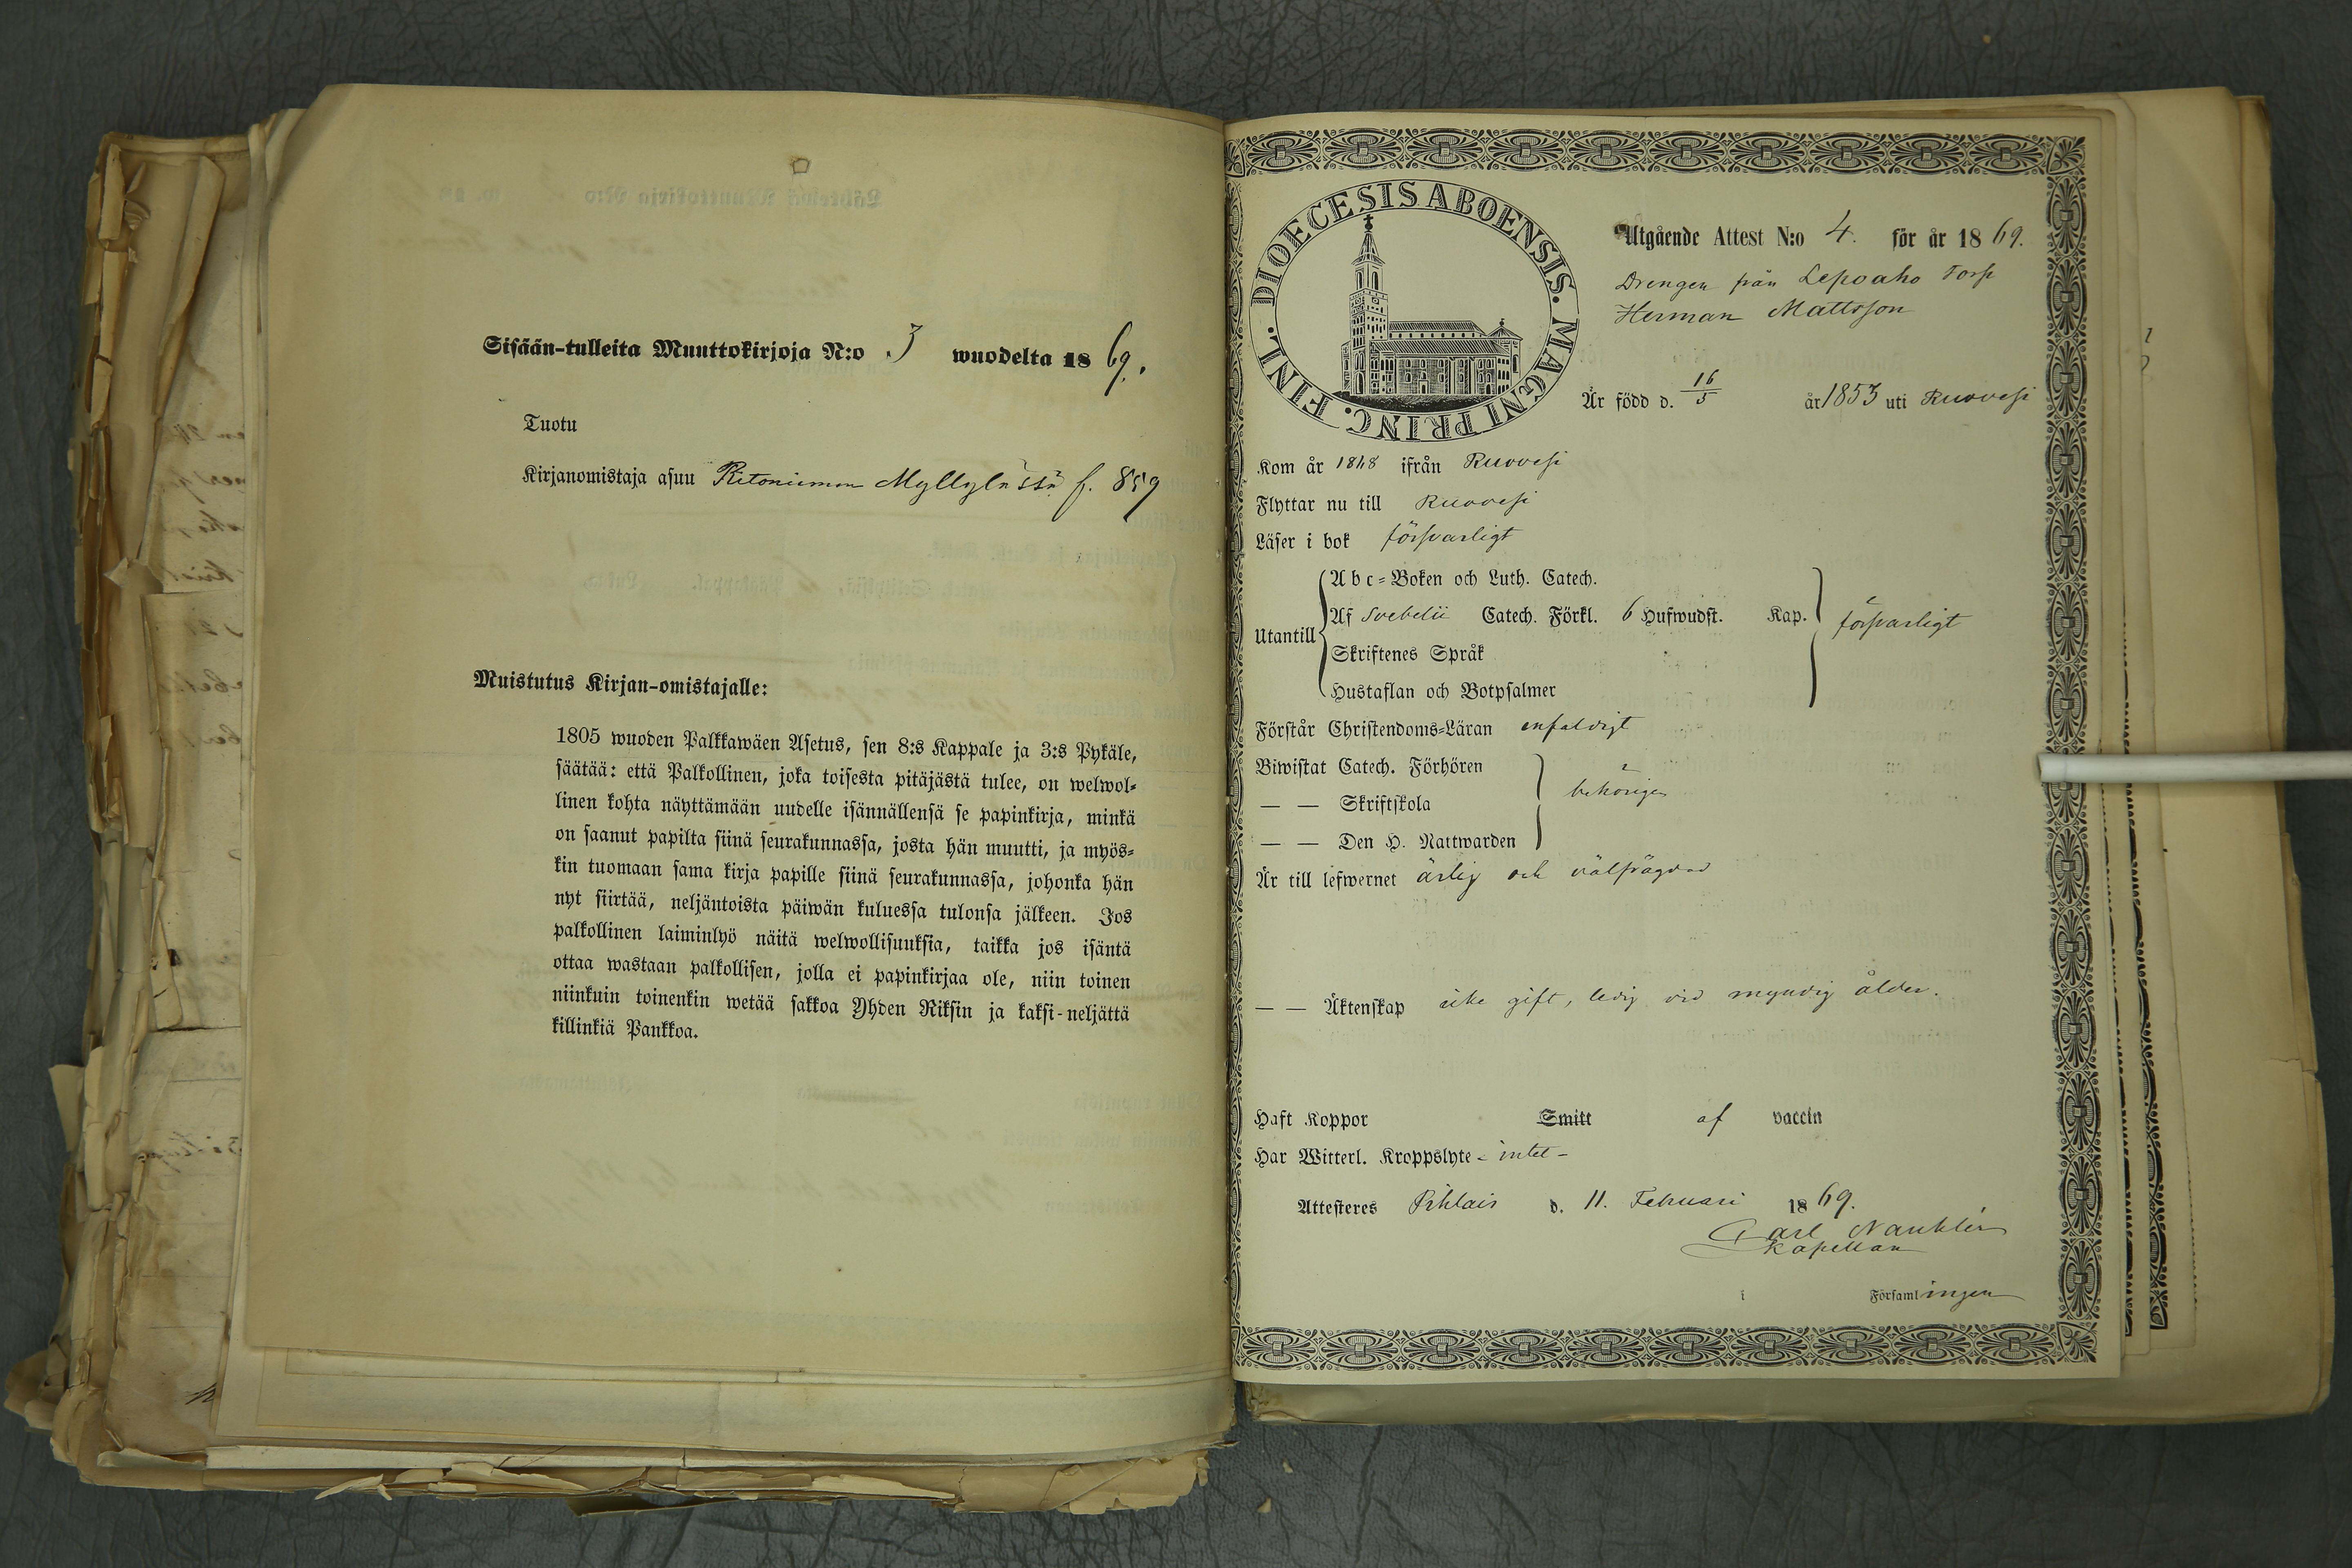 Sisään-tulleita Muuttokirjoja N:o 3 wuodelta 1869.
Tuotu
Kirjanomistaja asuu Ritoniemen Myllylässä f. 859
Muistutus Kirjan-omistajalle:
1805 wuoden Palkkawäen Asetus, sen 8:s Kappale ja 3:s Pykäle,
säätää: että Palkollinen, joka toisesta pitäjästä tulee, on welwol-
linen kohta näyttämään uudelle isännällensä se papinkirja, minkä
on saanut papilta siinä seurakunnassa, josta hän muutti, ja myös-
kin tuomaan sama kirja papille siinä seurakunnassa, johonka hän
nyt siirtää, neljäntoista päiwän kuluessa tulonsa jälkeen. Jos
palkollinen laiminlyö näitä welwollisuuksia, taikka jos isäntä
ottaa wastaan palkollisen, jolla ei papinkirjaa ole, niin toinen
niinkuin toinenkin wetää sakkoa Yhden Riksin ja kaksi-neljättä
killinkiä Pankkoa.
DIOECESIS ABOENSIS. MAGNI PRINC. FINL.
Utgående Attest N:o 4. för år 1869.
Drengen från Lepoaho Torp
Herman Mattsson
Är född d. 16/5 år 1853 uti Ruovesi
Kom år 1868 ifrån Ruovesi
Flyttar nu till Ruovesi
Läser i bok försvarligt
Utantill
Abc-Boken och Luth. Catech.
Af Svebelii Catech. Förkl. 6 Hufwudst. Kap.
försvarligt
Skriftenes Språk
Hustaflan och Botpsalmer
Förstår Christendoms-Läran enfaldigt
Biwistat Catech. Förhören
— — Skriftskola
behörigen
— — Den H. Nattwarden
Är till lefwernet ärlig och välfrägdad
— — Äktenskap icke gift, ledig vid myndig ålder.
Haft Koppor Smitt af vaccin
Har Witterl. Kroppslyte - intet -
Attesteres Pihlais d. 11. Februari 1869.
Carl Nauklér
Kapellan
i Församlingen